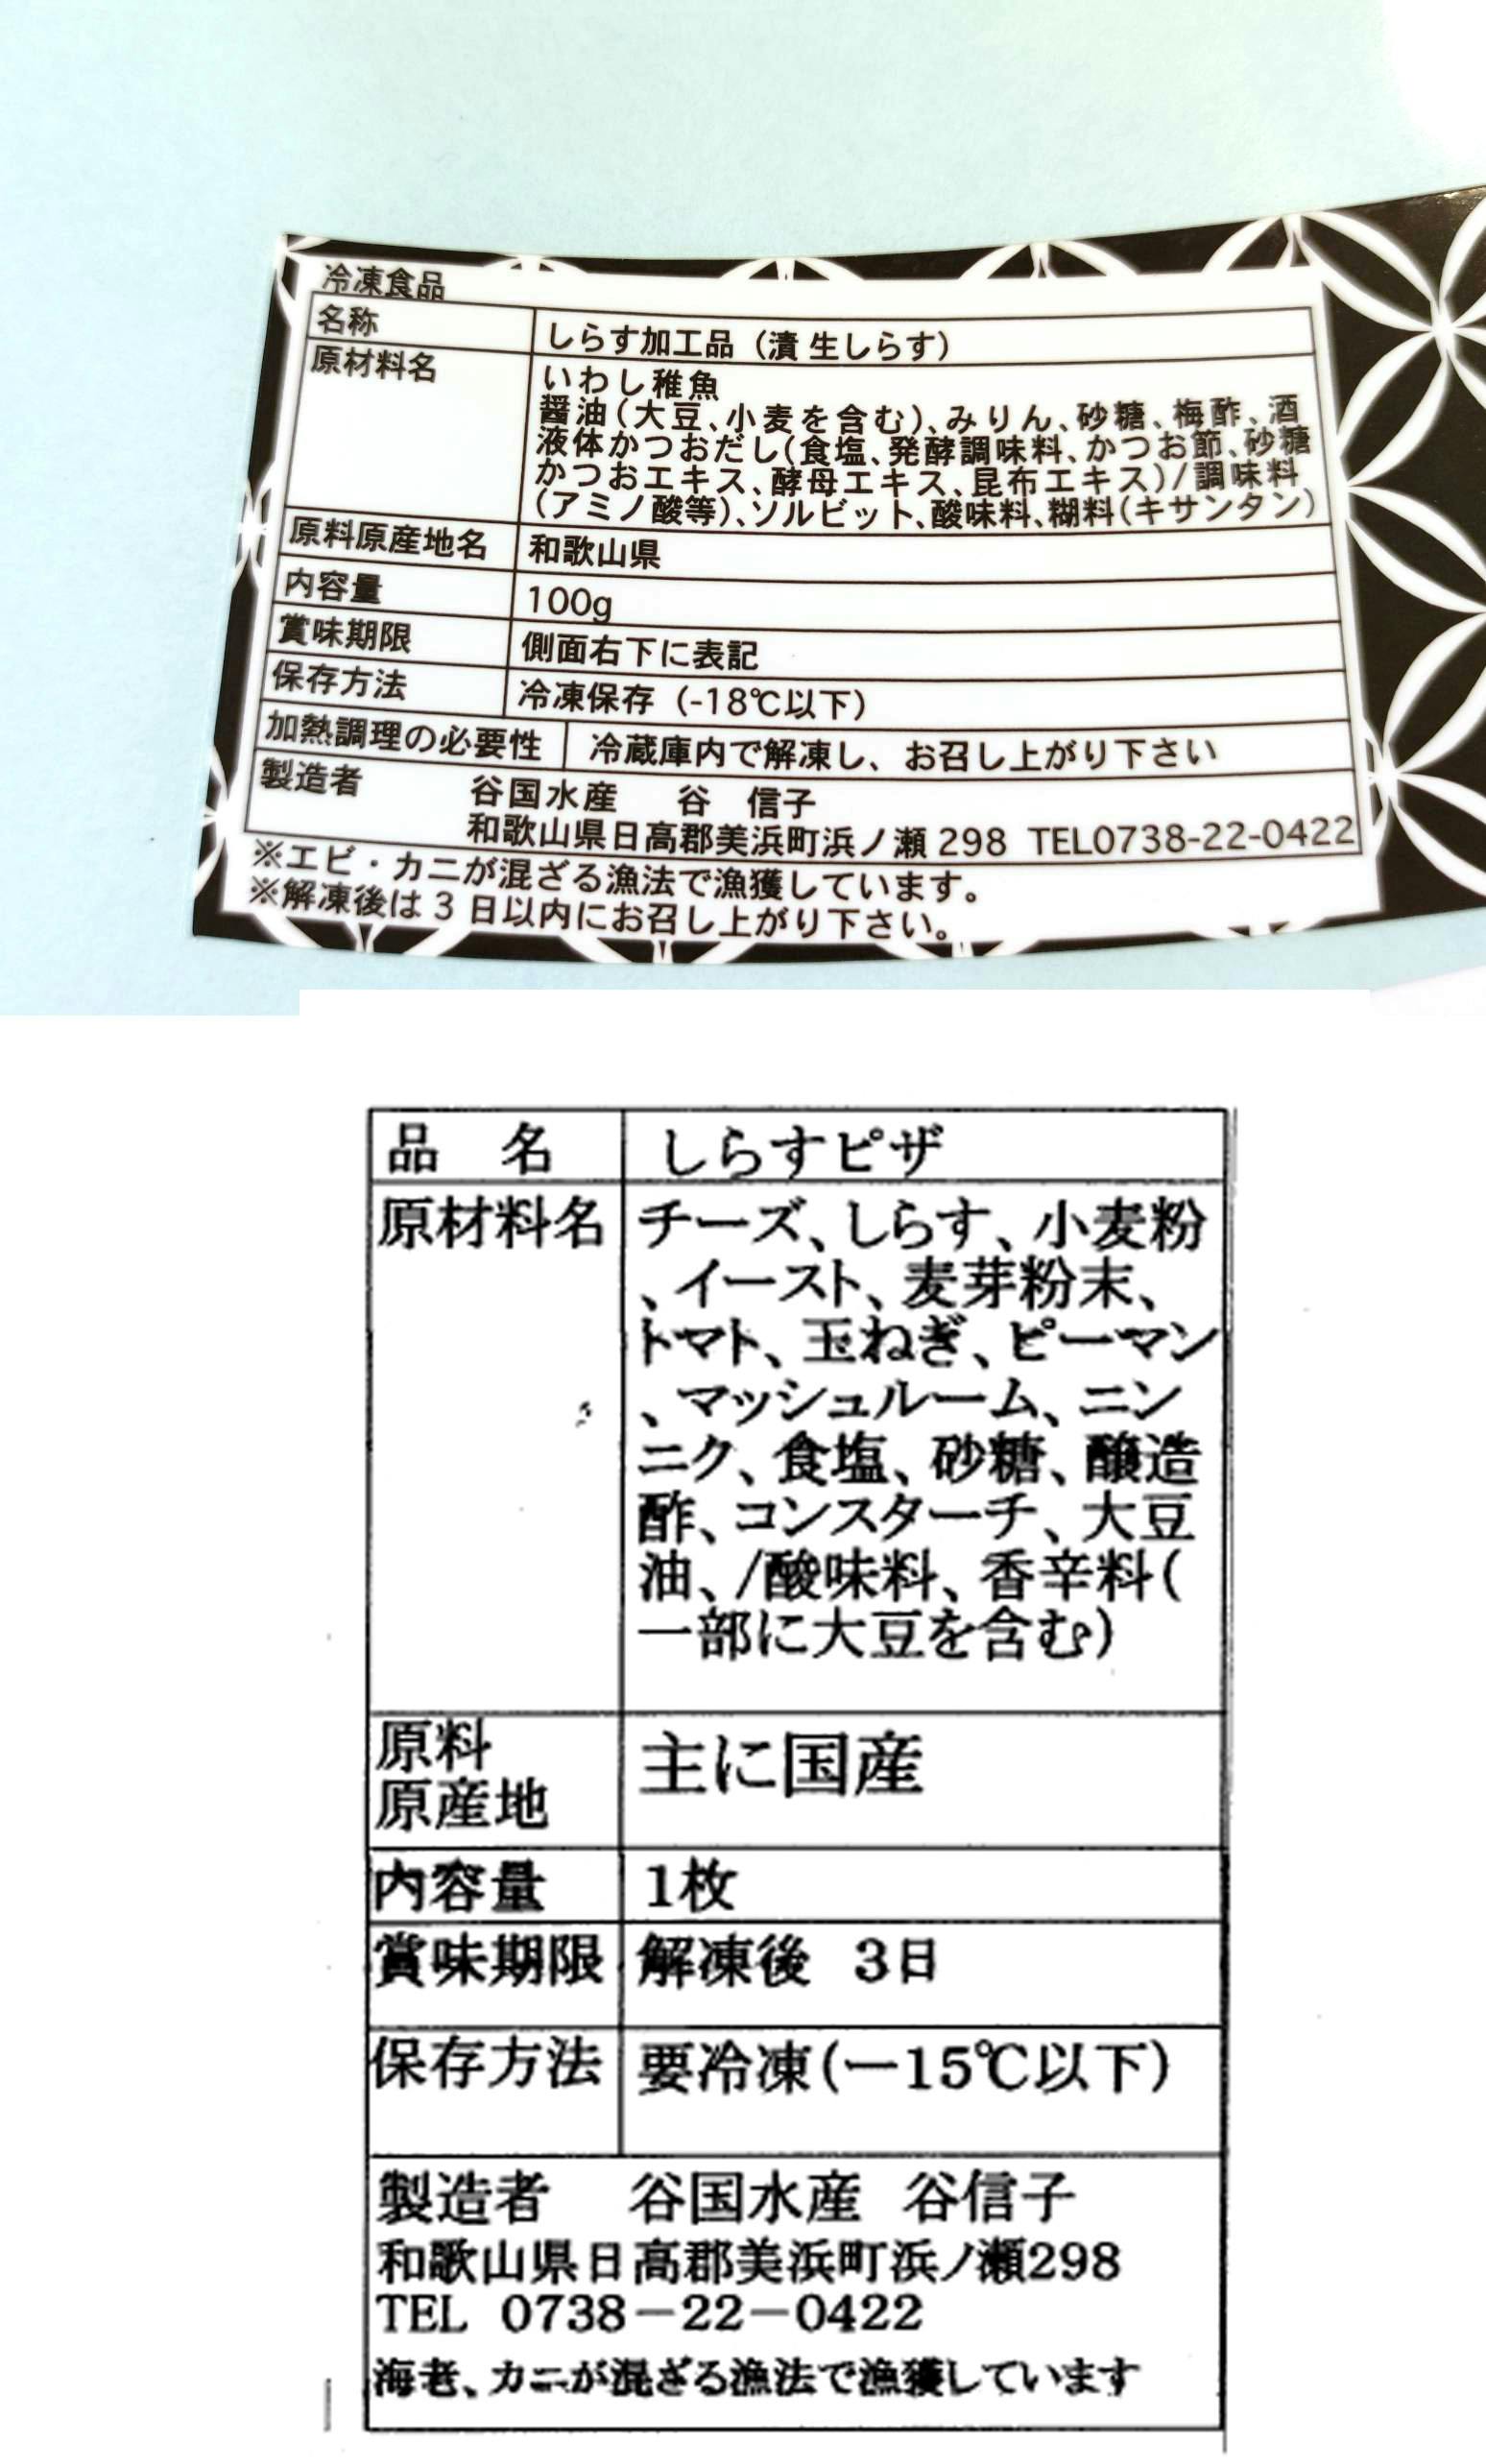 冷凍食品
名称 しらす加工品（漬 生しらす）
原材料名 いわし稚魚
醤油（大豆、小麦を含む）、みりん、砂糖、梅酢、酒
液体かつおだし（食塩、発酵調味料、かつお節、砂糖
かつおエキス、酵母エキス、昆布エキス）/調味料
（アミノ酸等）、ソルビット、酸味料、糊料（キサンタン）
原料原産地名 和歌山県
内容量 100g
賞味期限 側面右下に表記
保存方法 冷凍保存（-18℃以下）
加熱調理の必要性 冷蔵庫内で解凍し、お召し上がり下さい
製造者 谷国水産 谷 信子
和歌山県日高郡美浜町浜ノ瀬 298 TEL0738-22-0422
※エビ・カニが混ざる漁法で漁獲しています。
※解凍後は 3 日以内にお召し上がり下さい。
品 名 しらすピザ
原材料名 チーズ、しらす、小麦粉
、イースト、麦芽粉末、
トマト、玉ねぎ、ピーマン
、マッシュルーム、ニン
ニク、食塩、砂糖、醸造
酢、コンスターチ、大豆
油、/酸味料、香辛料(
一部に大豆を含む)
原料
原産地 主に国産
内容量 1枚
賞味期限 解凍後 3日
保存方法 要冷凍(ー15℃以下)
製造者 谷国水産 谷信子
和歌山県日高郡美浜町浜ノ瀬298
TEL 0738－22－0422
海老、カニが混ざる漁法で漁獲しています